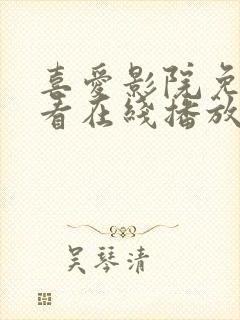 喜爱影院免
看在线播放
吴琴清